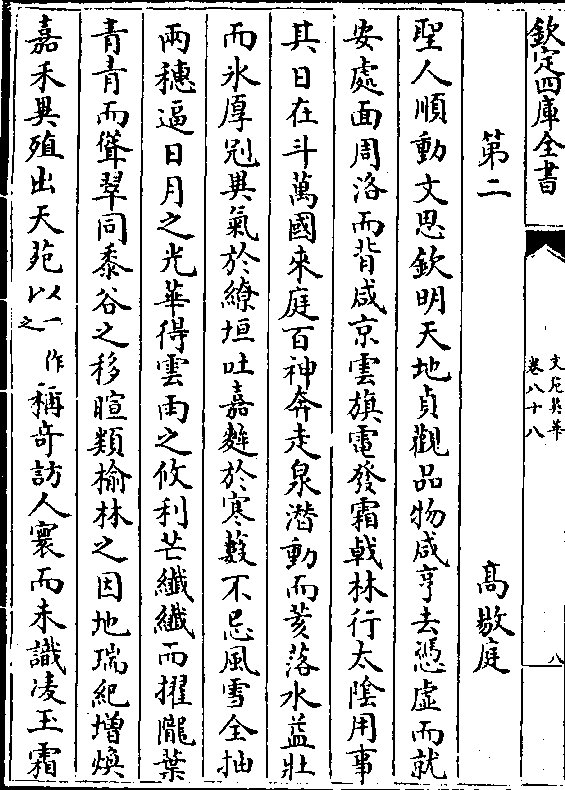 欽定四庫全書
文苑英華
卷八十八
八
第二
高敬庭
聖人順動文思欽明天地貞觀品物咸亨去憑虛而就
安處面周洛而背咸京雲旗電發霜戟林行太陰用事
其日在斗萬國來庭百神奔走泉潛動而荄落水益壯
而氷厚剋異氣於繚垣吐嘉麰於寒藪不忌風雪全抽
兩穗逼日月之光華得雲雨之攸利芒纖纖而擢隴葉
青青而聳翠同黍谷之移暄類榆林之因地瑞紀增煥
嘉禾異殖出天苑以一作之稱奇訪人寰而未識凌玉霜